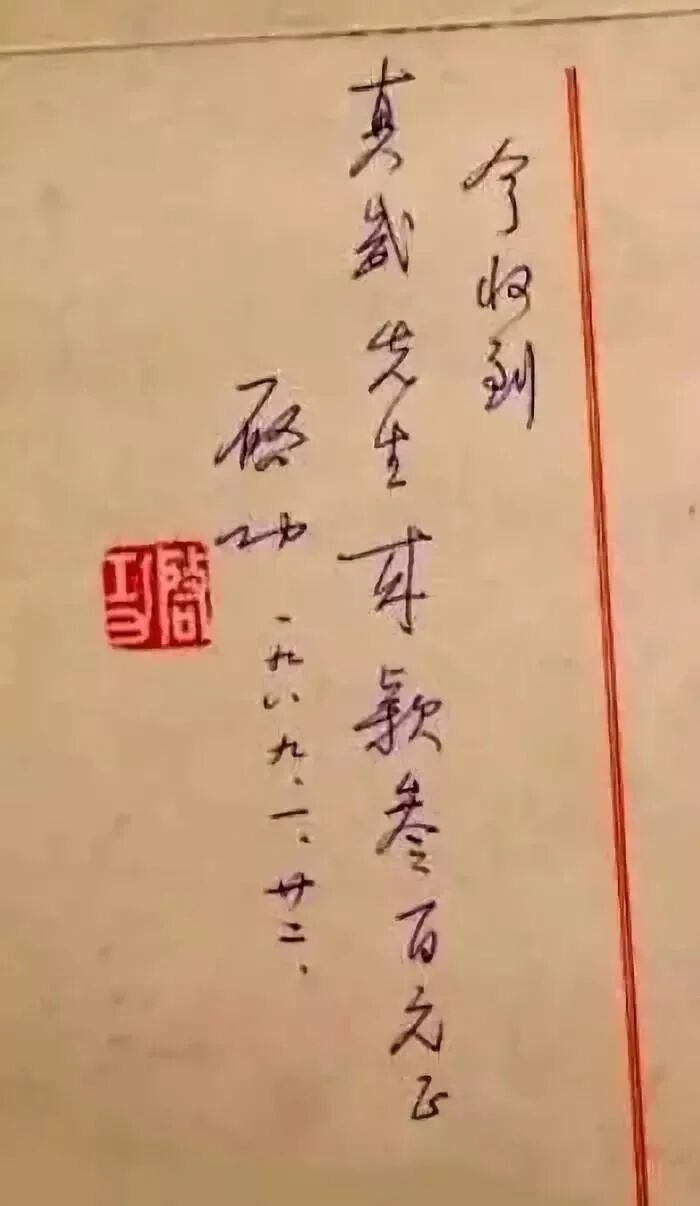 今收到
真 先生 款叁百元正
啓功 一九八九.一.廿二.
啓功